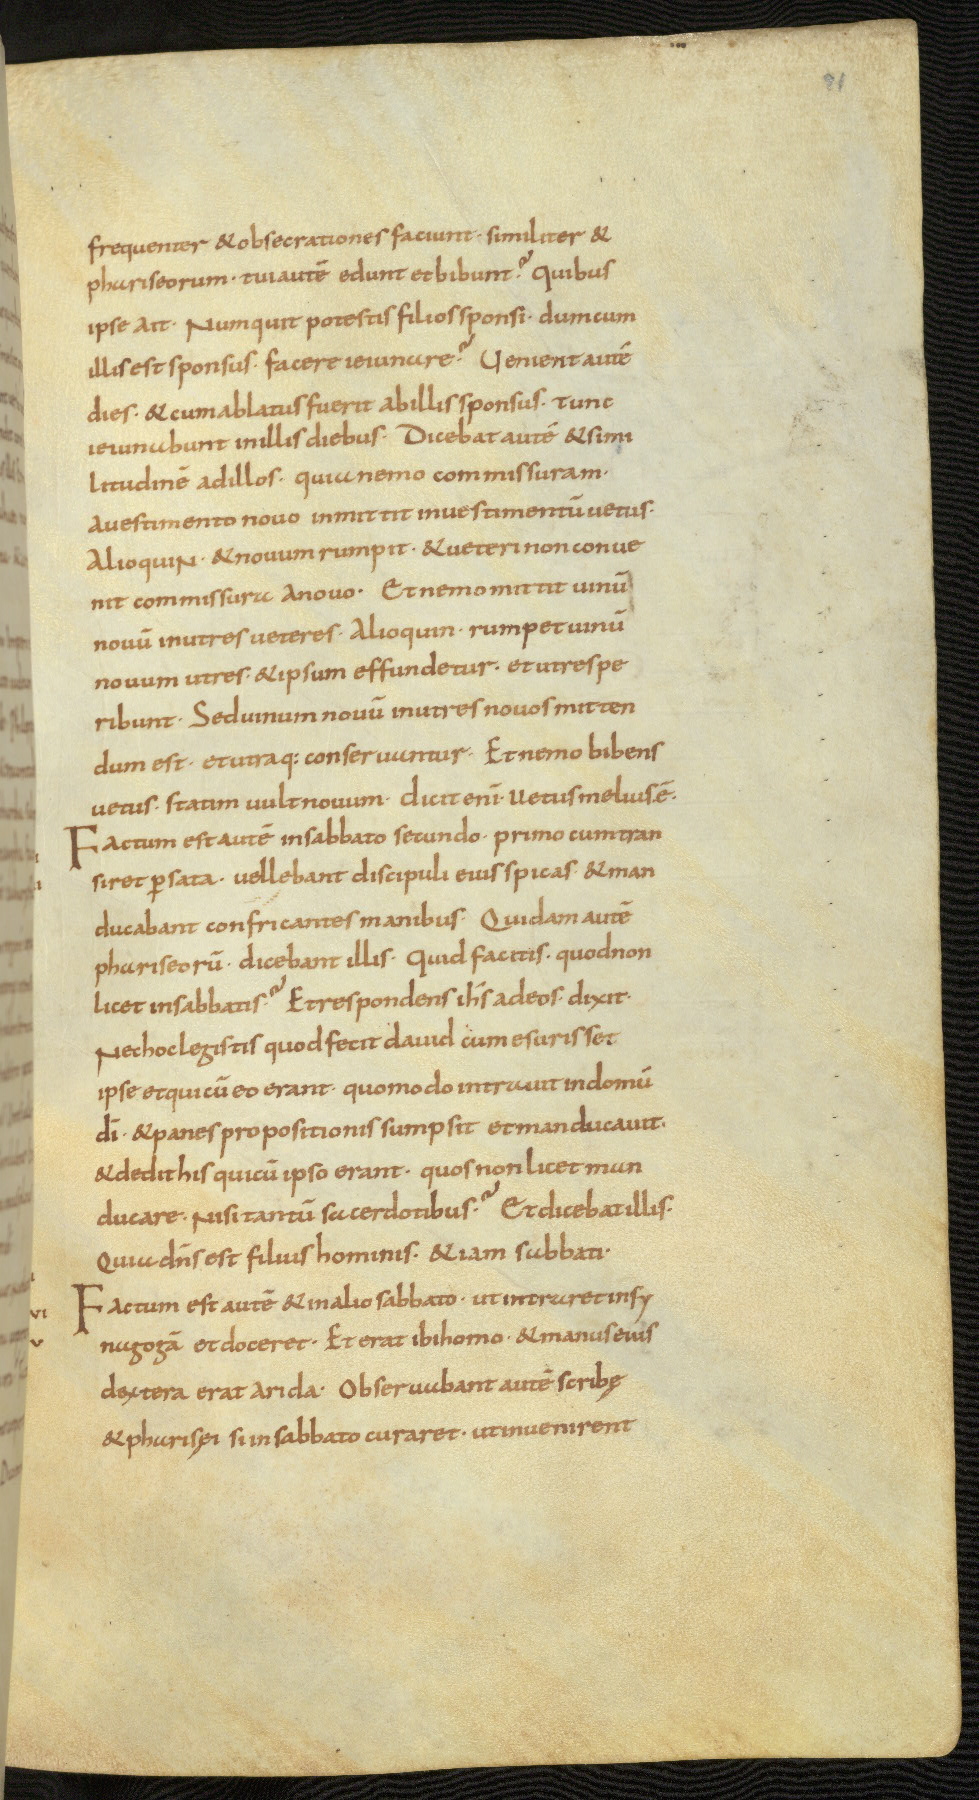 81
frequenter & obsecrationes faciunt· similiter &
phariseorum· tui autē edunt et bibunt? Quibus
ipse ait· Numquit potestis filios sponsi· dum cum
illis est sponsus· facere ieiunare? Uenient autē
dies· & cum ablatus fuerit ab illis sponsus· tunc
ieiunabunt in illis diebus· Dicebat autē & simi
litudinē ad illos· quia nemo commissuram·
a uestimento nouo inmittit in uestimentū uetus·
Alioquin· & nouum rumpit· & ueteri non conue
nit commissura a nouo· Et nemo mittit uinū
nouū in utres ueteres· Alioquin· rumpet uinū
nouum utres· & ipsum effundetur· et utres pe
ribunt· Sed uinum nouū in utres nouos mitten
dum est· et utraq: conseruantur· Et nemo bibens
uetus· statim uult nouum· dicit enī· Uetus melius ē·
Factum est autē in sabbato secundo· primo cum tran
siret ꝑ sata· uellebant discipuli eius spicas· & man
ducabant confricantes manibus· Quidam autē
phariseorū· dicebant illis· Quid facitis· quod non
licet in sabbatis? Et respondens ihs̄ ad eos· dixit·
Nec hoc legistis quod fecit dauid cum esurisset
ipse et qui cū eo erant· quomodo intrauit in domū
dī· & panes propositionis sumpsit et manducauit·
& dedit his qui cū ipso erant· quos non licet man
ducare· Nisi tantū sacerdotibus? Et dicebat illis·
Quia dn̄s est filius hominis· & iam sabbati·
Factum est autē & in alio sabbato· ut intraret in sy
nagogā et doceret· Et erat ibi homo· & manus eius
dextera erat arida· Obseruabant autē scribę
& pharisęi si in sabbato curaret· ut inuenirent